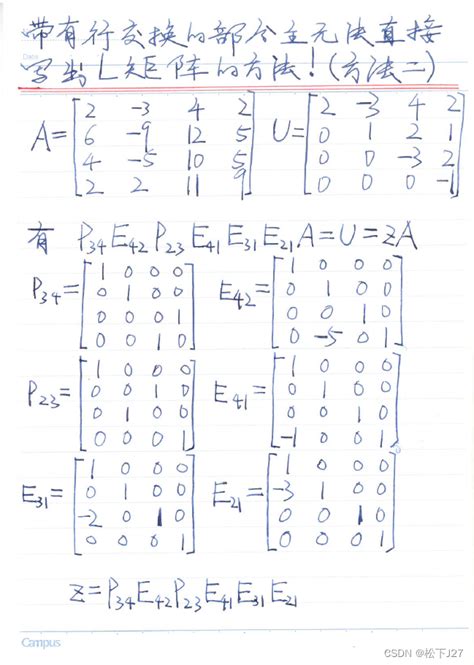 带有行交换的部分主元法直接
写出L矩阵的方法！(方法二)
A=[2 -3 4 2
6 -9 12 5
4 -5 10 5
2 2 11 9]
U=[2 -3 4 2
0 1 2 1
0 0 -3 2
0 0 0 -1]
有 P34E42P23E41E31E21A=U=ZA
P34=[1 0 0 0
0 1 0 0
0 0 0 1
0 0 1 0]
E42=[1 0 0 0
0 1 0 0
0 0 1 0
0 -5 0 1]
P23=[1 0 0 0
0 0 1 0
0 1 0 0
0 0 0 1]
E41=[1 0 0 0
0 1 0 0
0 0 1 0
-1 0 0 1]
E31=[1 0 0 0
0 1 0 0
-2 0 1 0
0 0 0 1]
E21=[1 0 0 0
-3 1 0 0
0 0 1 0
0 0 0 1]
Z=P34E42P23E41E31E21
Campus
CSDN @松下J27